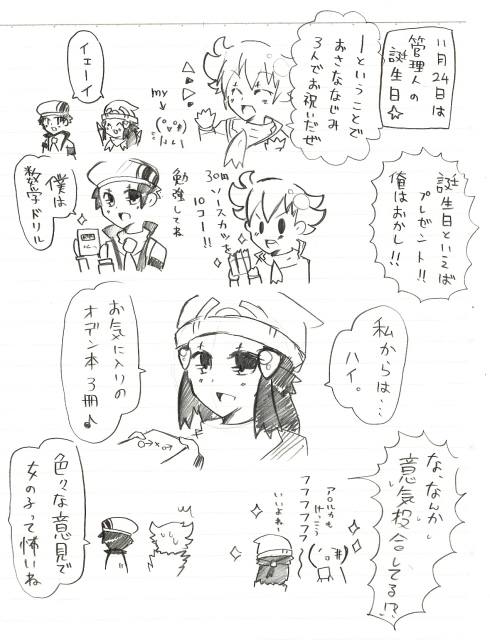 11月24日は
管理人の
誕生日☆
ーということで
おさななじみ
3人でお祝いだぜ
my
イェーイ
誕生日といえば
プレゼント!!
俺はおかし!!
30円
ソースカツを
10コー!!
勉強してね
僕は
数学ドリル
私からは…
ハイ。
お気に入りの
オデン本3冊♪
な、なんか
意気投合してる!?
アロルカも
けっこう
フフフフフフ
いいよねー
色々な意見で
女の子って怖いね